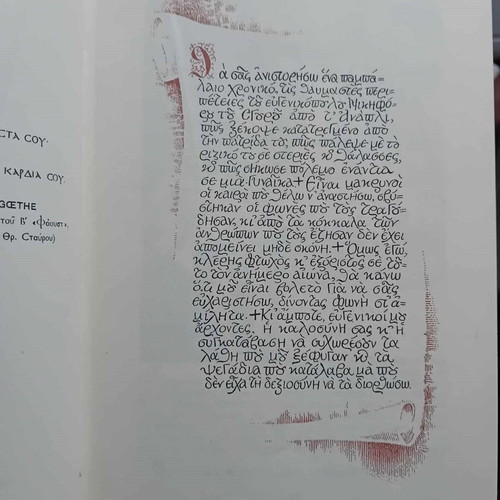 ΣΤΑ ΣΟΥ.
ΚΑΡΔΙΑ ΣΟΥ.
GŒTHE
τοῦ Β' «Φάουστ».
Θρ. Σταύρου)
Θὰ σᾶς ἀνιστορήσω ἕνα παμπά-
λαιο χρονικό, τὶς θαυμαστὲς περι-
πέτειες τοῦ εὐγενικόπουλου Νικηφό-
ρου τοῦ Σγουροῦ ἀπὸ τ' Ἀνάπλι,
πῶς ξέκοψε κατατρεγμένο ἀπὸ
τὴν πατρίδα του, πῶς πάλεψε μὲ τὸ
ριζικό του σὲ στεριὲς καὶ θάλασσες,
καὶ πῶς σήκωσε πόλεμο ἐνάντια
σὲ μιὰ γυναίκα + Εἶναι μακρυνοὶ
οἱ καιροὶ ποὺ θέλω ν' ἀναστήσω, σβύ-
στηκαν οἱ φωνὲς ποὺ τοὺς τραγού-
δησαν, κι' ἀπὸ τὰ κόκκαλα τῶν
ἀνθρώπων ποὺ τοὺς ἔζησαν δὲν ἔχει
ἀπομείνει μηδὲ σκόνη. + Ὅμως ἐγώ,
κλέρης φτωχὸς κ' ἐξόριστος σὲ τοῦ-
το τὸν ἀνήμερο αἰώνα, θὰ κάνω
ὅ,τι μοῦ εἶναι βολετὸ γιὰ νὰ σᾶς
εὐχαριστήσω, δίνοντας φωνὴ στ' ἀ-
μίλητα. + Κι' ἄμποτε, εὐγενικοί μου
ἄρχοντες, ἡ καλοσύνη σας κ' ἡ
συγκατάβαση νὰ συχωρέσουν τὰ
λάθη ποὺ μοῦ ξέφυγαν καὶ τὰ
ψεγάδια ποὺ κατάλαβα μὰ ποὺ
δὲν εἶχα τὴ δεξιοσύνη νὰ τὰ διορθώσω.